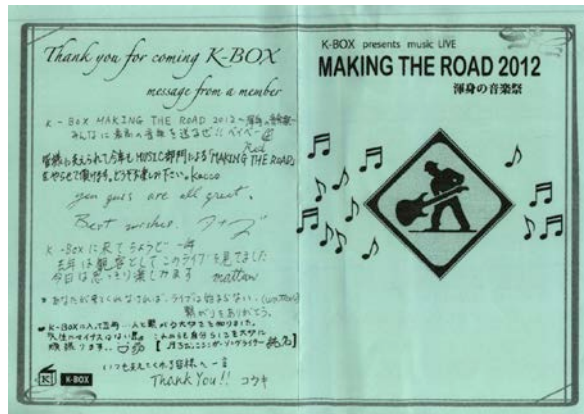 Thank you for coming K-BOX
message from a member
K-BOX MAKING THE ROAD 2012 ~渾身の音楽祭~
みんなに最高の音楽を送るぜ!! ベイベー
皆様に支えられて今年もMUSIC部門による「MAKING THE ROAD」
をやらせて頂けます。どうぞお楽しみ下さい。Kacco
you guys are all great.
Best wishes.
K-BOXに来てちょうど一年
去年は観客としてこのライブを見てました
今日は思いっきり楽しみます mattan
あなたが来てくれなければ、ライブは始まらない。
繋がりをありがとう。
K-BOXに入って5年 人と繋がる大切さを知りました。
これからも自分らしさを大切に
頑張ります。
いつも支えてくれる皆様へ一言
Thank You!! コウキ
K-BOX
K-BOX presents music LIVE
MAKING THE ROAD 2012
渾身の音楽祭